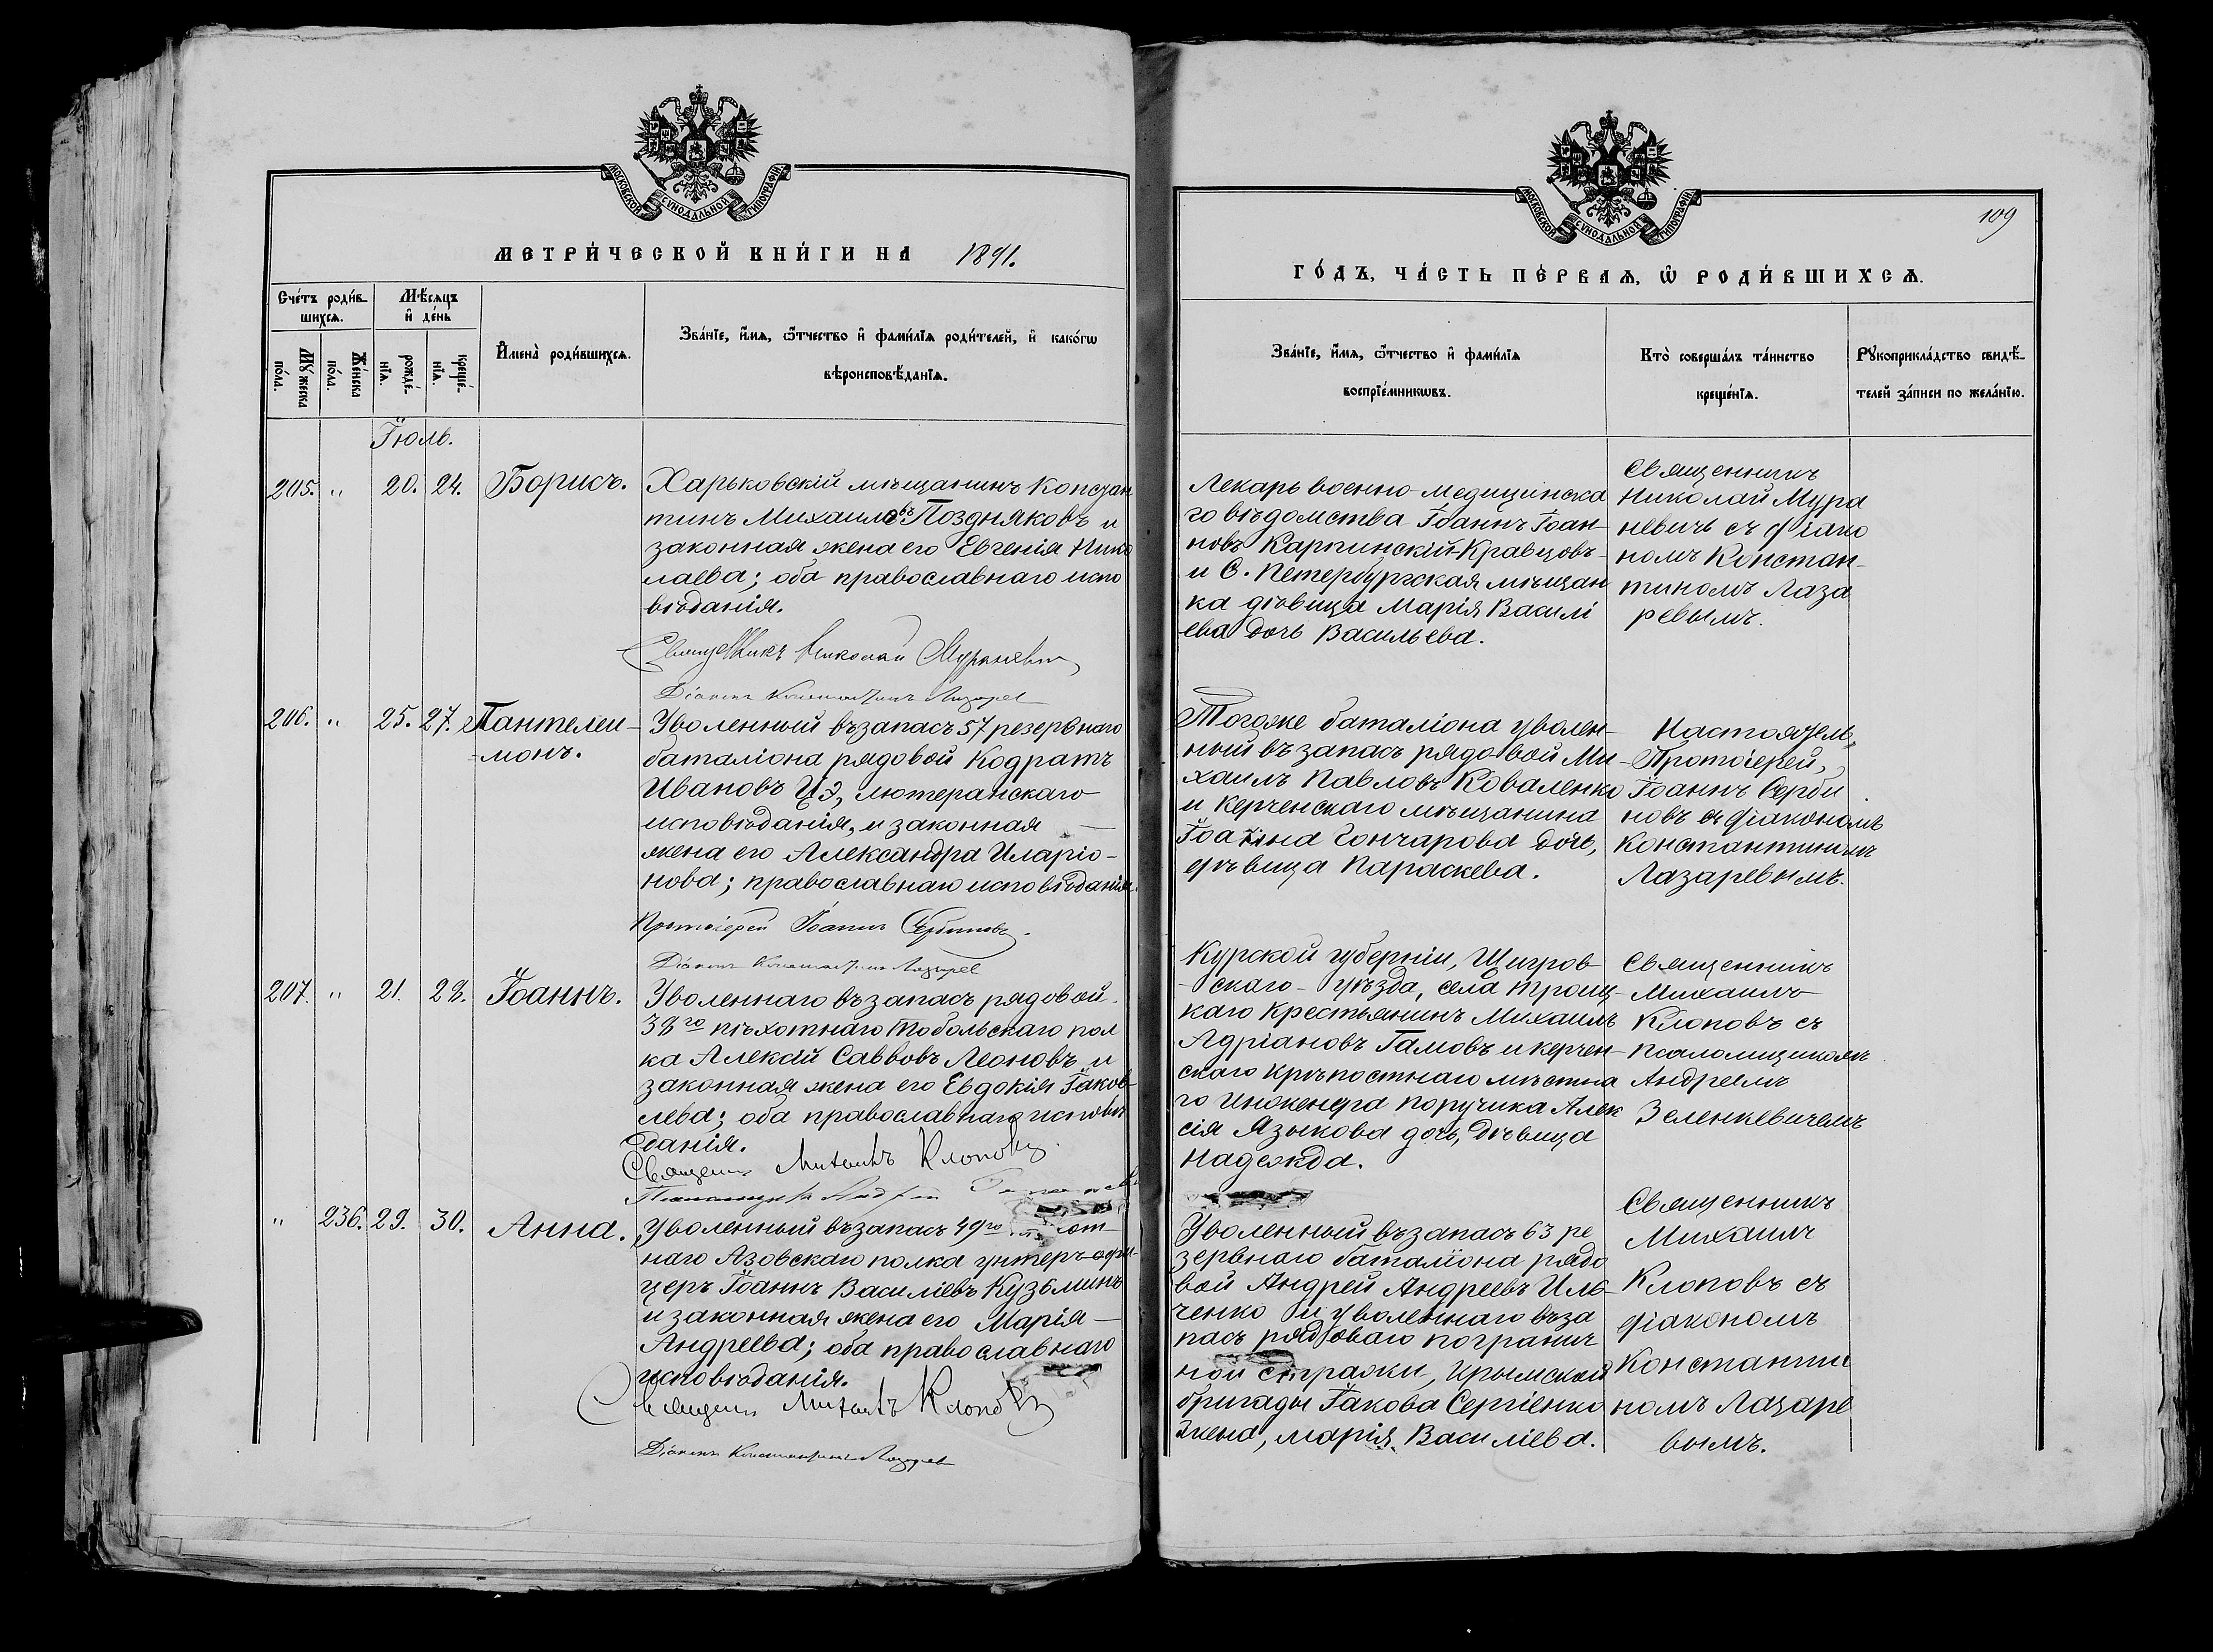 МОСКОВСКОЙ СѴНОДАЛЬНОЙ ТИПОГРАФІИ
МЕТРИ́ЧЕСКОЙ КНИ́ГИ НА 1891.
Сче́тъ роди́в-
шихсѧ.
Мѣ́сѧцъ
и҆ де́нь
Мꙋ́жеска
по́ла.
Же́нска
по́ла.
рожде́-
нїѧ.
креще́-
нїѧ.
И҆мена̀ роди́вшихсѧ.
Зва́нїе, и҆́мѧ, ѻ҆́тчество и҆ фами́лїѧ роди́телей, и҆ како́гѡ
вѣроисповѣ́данїѧ.
Іюль.
205. " 20. 24. Борисъ.
Харьковскій мѣщанинъ Констан
тинъ Михаиловъ Поздняковъ и
законная жена его Евгенія Нико
лаева; оба православнаго испо
вѣданія.
Священникъ Николай Мураневичъ
Діаконъ Константинъ Лазарев
206. " 25. 27. Пантелеи-
-монъ.
Уволенный въ запасъ 57 резервнаго
баталіона рядовой Кодратъ
Ивановъ Цэ, лютеранскаго
исповѣданія, и законная —
жена его Александра Иларіо-
нова; православнаго исповѣданія.
Протоіерей Іоаннъ Сербиновъ.
Діаконъ Константинъ Лазарев
207. " 21. 28. Іоаннъ.
Уволеннаго въ запасъ рядовой
38го пѣхотнаго Тобольскаго пол
ка Алексій Саввовъ Леоновъ и
законная жена его Евдокія Іаков-
лева; оба православнаго исповѣ
данія.
Священникъ Михаилъ Клоповъ.
Псаломщикъ Андрей
" 236. 29. 30. Анна.
Уволенный въ запасъ 49го пѣхот-
наго Азовскаго полка унтеръ-офи-
церъ Іоаннъ Василіевъ Кузьминъ
и законная жена его Марія —
Андреева; оба православнаго
исповѣданія.
Священникъ Михаилъ Клоповъ
Діаконъ Константинъ Лазарев
109
МОСКОВСКОЙ СѴНОДАЛЬНОЙ ТИПОГРАФІИ
ГО́ДЪ, ЧА́СТЬ ПЕ́РВАѦ, Ѡ҆ РОДИ́ВШИХСѦ.
Зва́нїе, и҆́мѧ, ѻ҆́тчество и҆ фами́лїѧ
воспрїе́мникѡвъ.
Кто̀ соверша́лъ та́инство
креще́нїѧ.
Рꙋкоприкла́дство свидѣ́-
телей за́писи по жела́нїю.
Лекарь военно-медицинска
го вѣдомства Іоаннъ Іоан-
новъ Карпинскій-Кравцовъ-
и С. Петербургская мѣщан
ка дѣвица Марія Василі
ева дочь Васильева.
Священникъ
Николай Мура
невичъ съ діако
номъ Констан-
тиномъ Лаза
ревымъ.
Тогоже баталіона уволен-
ный въ запасъ рядовой Ми-
хаилъ Павловъ Коваленко
и Керченскаго мѣщанина
Іоанна Гончарова дочь,
дѣвица Параскева.
Настоятель,
Протоіерей,
Іоаннъ Серби
новъ съ діакономъ
Константиномъ
Лазаревымъ.
Курской губерніи, Щигров-
-скаго- уѣзда, села Троиц-
каго крестьянинъ Михаилъ
Адріановъ Гамовъ и керчен-
скаго крѣпостнаго мѣстна
го инженера поручика Алек
сія Языкова дочь, дѣвица
Надежда.
Священникъ
Михаилъ
Клоповъ съ
псаломщикомъ
Андреемъ
Зеленкевичемъ
Уволенный въ запасъ 63 ре
зервнаго баталіона рядо
вой Андрей Андреевъ Иль-
ченко и уволеннаго въ за
пасъ рядоваго погранич
ной стражи, Крымской
бригады Іакова Сергіенко
жена, Марія Василіева.
Священникъ
Михаилъ
Клоповъ съ
діакономъ
Константи
номъ Лазаре
вымъ.